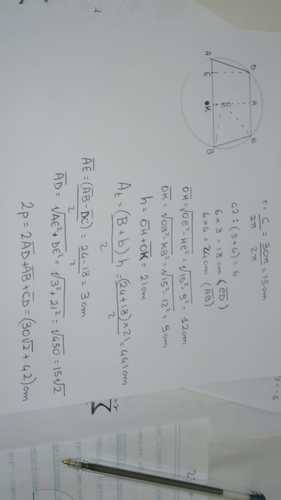 A
D
E
H
O
K
B
C
r = C/2π = 30π/2π = 15 cm
6×3 = 18 cm (CD)
6×4 = 24 cm (AB)
OH = √OC²-HC² = √15²-9² = 12 cm
OK = √OB²-KB² = √15²-12² = 9 cm
h = OH+OK = 21 cm
At = (B+b)h/2 = (24+18)×21/2 = 441 cm
AE = (AB-DC)/2 = 24-18/2 = 3 cm
AD = √AE²+DE² = √3²+21² = √450 = 15√2
2p = 2AD+AB+CD = (30√2+42) cm